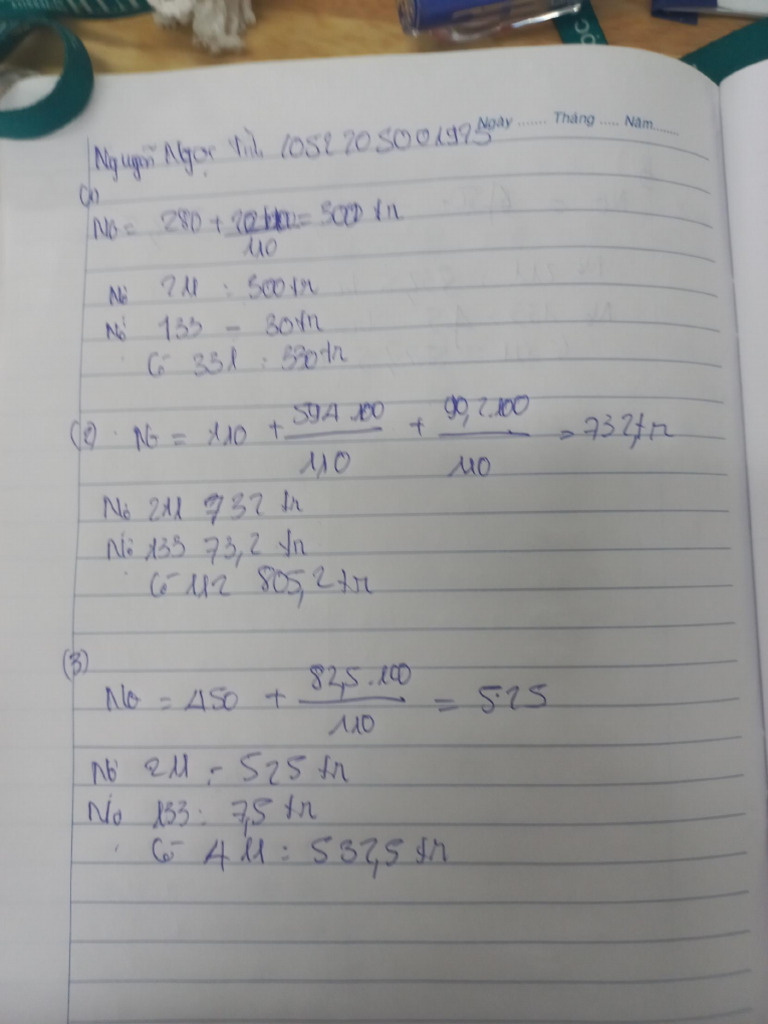 Ngày ....... Tháng ..... Năm.......
Nguyễn Ngọc 1052205001925
(1)
NG = 280 + /110 = 300 tr
Nợ 211 : 300 tr
Nợ 133 - 30 tr
Có 331 : 330 tr
(2) NG = 110 + 594.100/110 + 90,2.100/110 = 732 tr
Nợ 211 732 tr
Nợ 133 73,2 tr
Có 112 805,2 tr
(3)
NG = 450 + 82,5.100/110 = 525
Nợ 211 - 525 tr
Nợ 133 : 7,5 tr
Có 411 : 532,5 tr